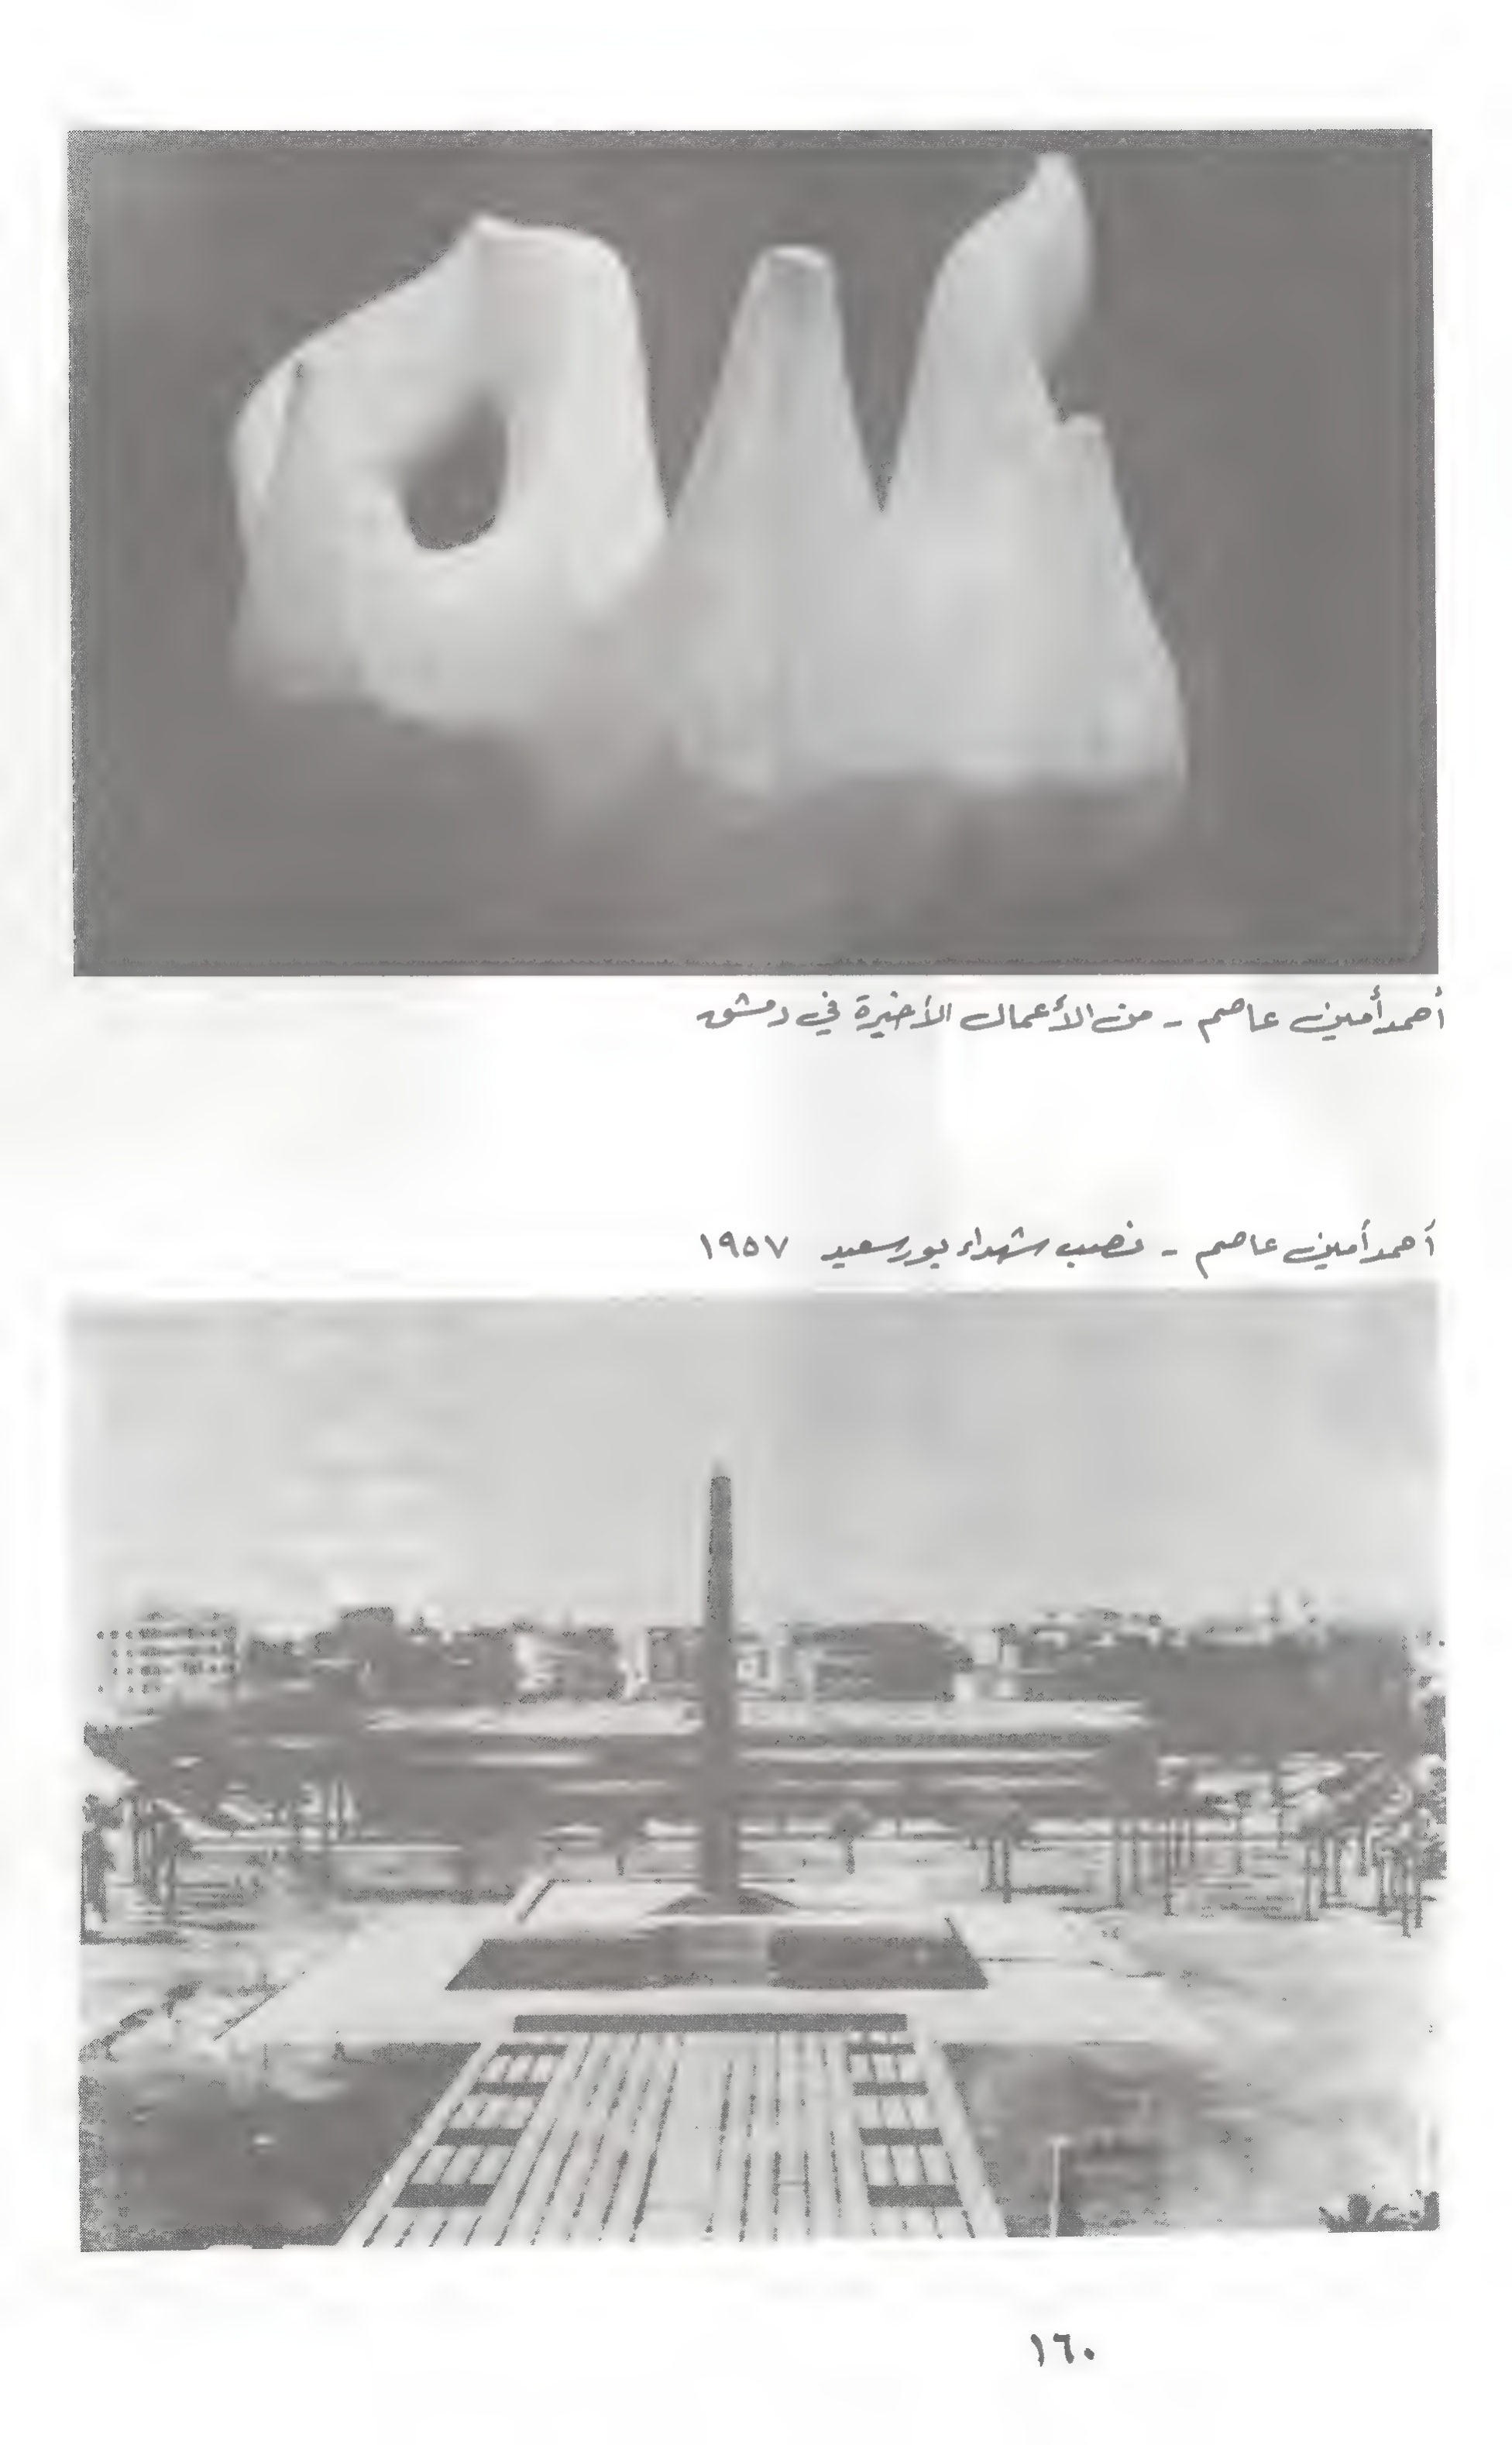 أحمد أمين عاصم - من الأعمال الأخيرة في دمشق
أحمد أمين عاصم - نصب شهداء بورسعيد ١٩٥٧
١٦٠